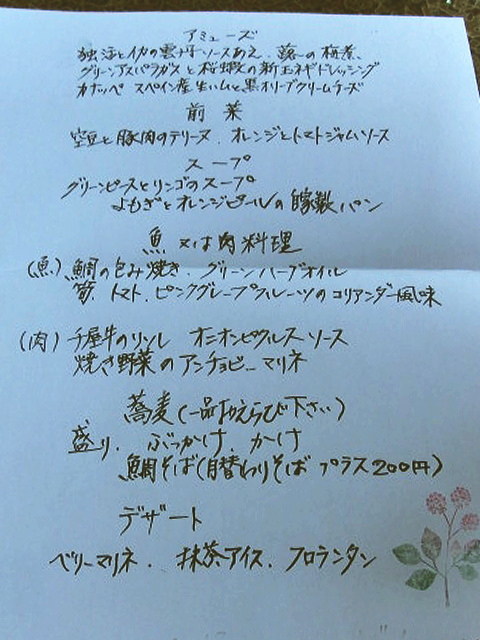 アミューズ
独活とイカの雲丹ソースあえ、蕗の梅煮、
グリーンアスパラガスと桜蝦の新玉ネギドレッシング
カナッペ スペイン産生ハムと黒オリーブクリームチーズ
前菜
空豆と豚肉のテリーヌ、オレンジとトマトジャムソース
スープ
グリーンピースとリンゴのスープ
よもぎとオレンジピールの自家製パン
魚又は肉料理
(魚) 鯛の包み焼き、グリーンハーブオイル
筍、トマト、ピンクグレープフルーツのコリアンダー風味
(肉) 千屋牛のソル オニオンピクルスソース
焼き野菜のアンチョビーマリネ
蕎麦(一品おえらび下さい)
盛り、ぶっかけ かけ
鯛そば(月替わりそば プラス200円)
デザート
ベリーマリネ、抹茶アイス、フロランタン